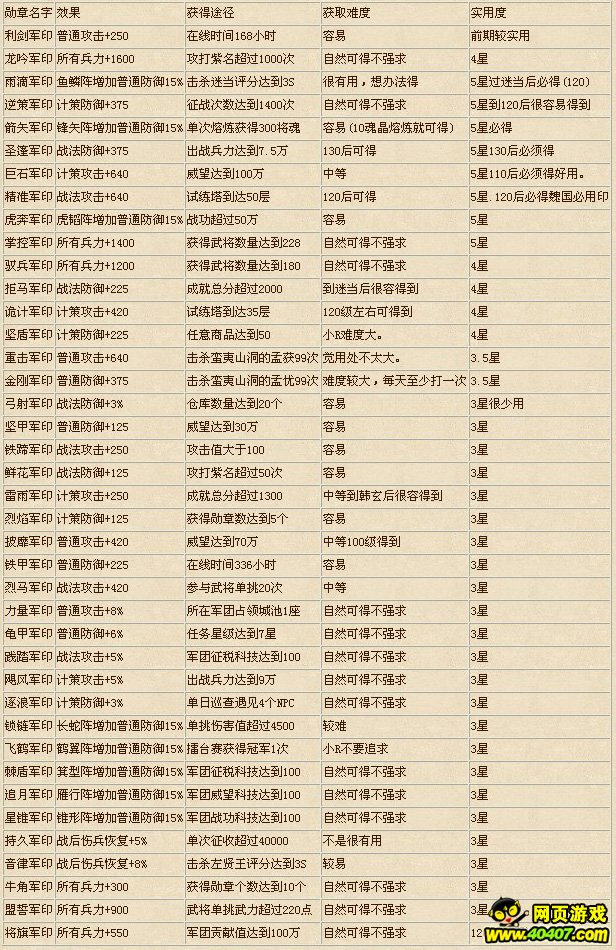 勋章名字 效果 获得途径 获取难度 实用度
利剑军印 普通攻击+250 在线时间168小时 容易 前期较实用
龙吟军印 所有兵力+1600 攻打紫名超过1000次 自然可得不强求 4星
雨滴军印 鱼鳞阵增加普通防御15% 击杀迷当评分达到3S 很有用，想办法得 5星过迷当后必得(120)
逆策军印 计策防御+375 征战次数达到1400次 自然可得不强求 5星到120后很容易得到
箭矢军印 锋矢阵增加普通防御15% 单次熔炼获得300将魂 容易(10魂晶熔炼就可得) 5星必得
圣篷军印 战法防御+375 出战兵力达到7.5万 130后可得 5星130后必须得
巨石军印 计策攻击+640 威望达到100万 中等 5星110后必须得好用。
精准军印 战法攻击+640 试练塔到达50层 120后可得 5星.120后必得魏国必用印
虎奔军印 虎韬阵增加普通防御15% 战功超过50万 容易 5星
掌控军印 所有兵力+1400 获得武将数量达到228 自然可得不强求 5星
驭兵军印 所有兵力+1200 获得武将数量达到180 自然可得不强求 4星
拒马军印 战法防御+225 成就总分超过2000 到迷当后很容得到 4星
诡计军印 计策攻击+420 试练塔到达35层 120级左右可得到 4星
坚盾军印 计策防御+225 任意商品达到50 小R难度大。 4星
重击军印 普通攻击+640 击杀蛮夷山洞的孟获99次 觉用处不太大。 3.5星
金刚军印 普通防御+375 击杀蛮夷山洞的孟优99次 难度较大，每天至少打一次 3.5星
弓射军印 战法防御+3% 仓库数量达到20个 容易 3星很少用
坚甲军印 普通防御+125 威望达到30万 容易 3星
铁蹄军印 战法攻击+250 攻击值大于100 容易 3星
鲜花军印 战法防御+125 攻打紫名超过50次 容易 3星
雷雨军印 计策攻击+250 成就总分超过1300 中等到韩玄后很容得到 3星
烈焰军印 计策防御+125 获得勋章数达到5个 容易 3星
披靡军印 普通攻击+420 威望达到70万 中等100级得到 3星
铁甲军印 普通防御+225 在线时间336小时 容易 3星
烈马军印 战法攻击+420 参与武将单挑20次 中等 3星
力量军印 普通攻击+8% 所在军团占领城池1座 自然可得不强求 3星
龟甲军印 普通防御+6% 任务星级达到7星 自然可得不强求 3星
践踏军印 战法攻击+5% 军团征税科技达到100 自然可得不强求 3星
飓风军印 计策攻击+5% 出战兵力达到9万 自然可得不强求 3星
逐浪军印 计策防御+3% 单日巡查遇见4个NPC 自然可得不强求 3星
锁链军印 长蛇阵增加普通防御15% 单挑伤害值超过4500 较难 3星
飞鹤军印 鹤翼阵增加普通防御15% 擂台赛获得冠军1次 小R不要追求 3星
棘盾军印 箕型阵增加普通防御15% 军团征税科技达到100 自然可得不强求 3星
追月军印 雁行阵增加普通防御15% 军团威望科技达到100 自然可得不强求 3星
星锥军印 锥形阵增加普通防御15% 军团战功科技达到100 自然可得不强求 3星
持久军印 战后伤兵恢复+5% 单次征收超过40000 不是很有用 3星
音律军印 战后伤兵恢复+8% 击杀左贤王评分达到3S 较易 3星
牛角军印 所有兵力+300 获得勋章个数达到10个 自然可得不强求 3星
盟誓军印 所有兵力+900 武将单挑武力超过220点 自然可得不强求 3星
将旗军印 所有兵力+550 军团贡献值达到100万 自然可得不强求 12
网页游戏
www.40407.com